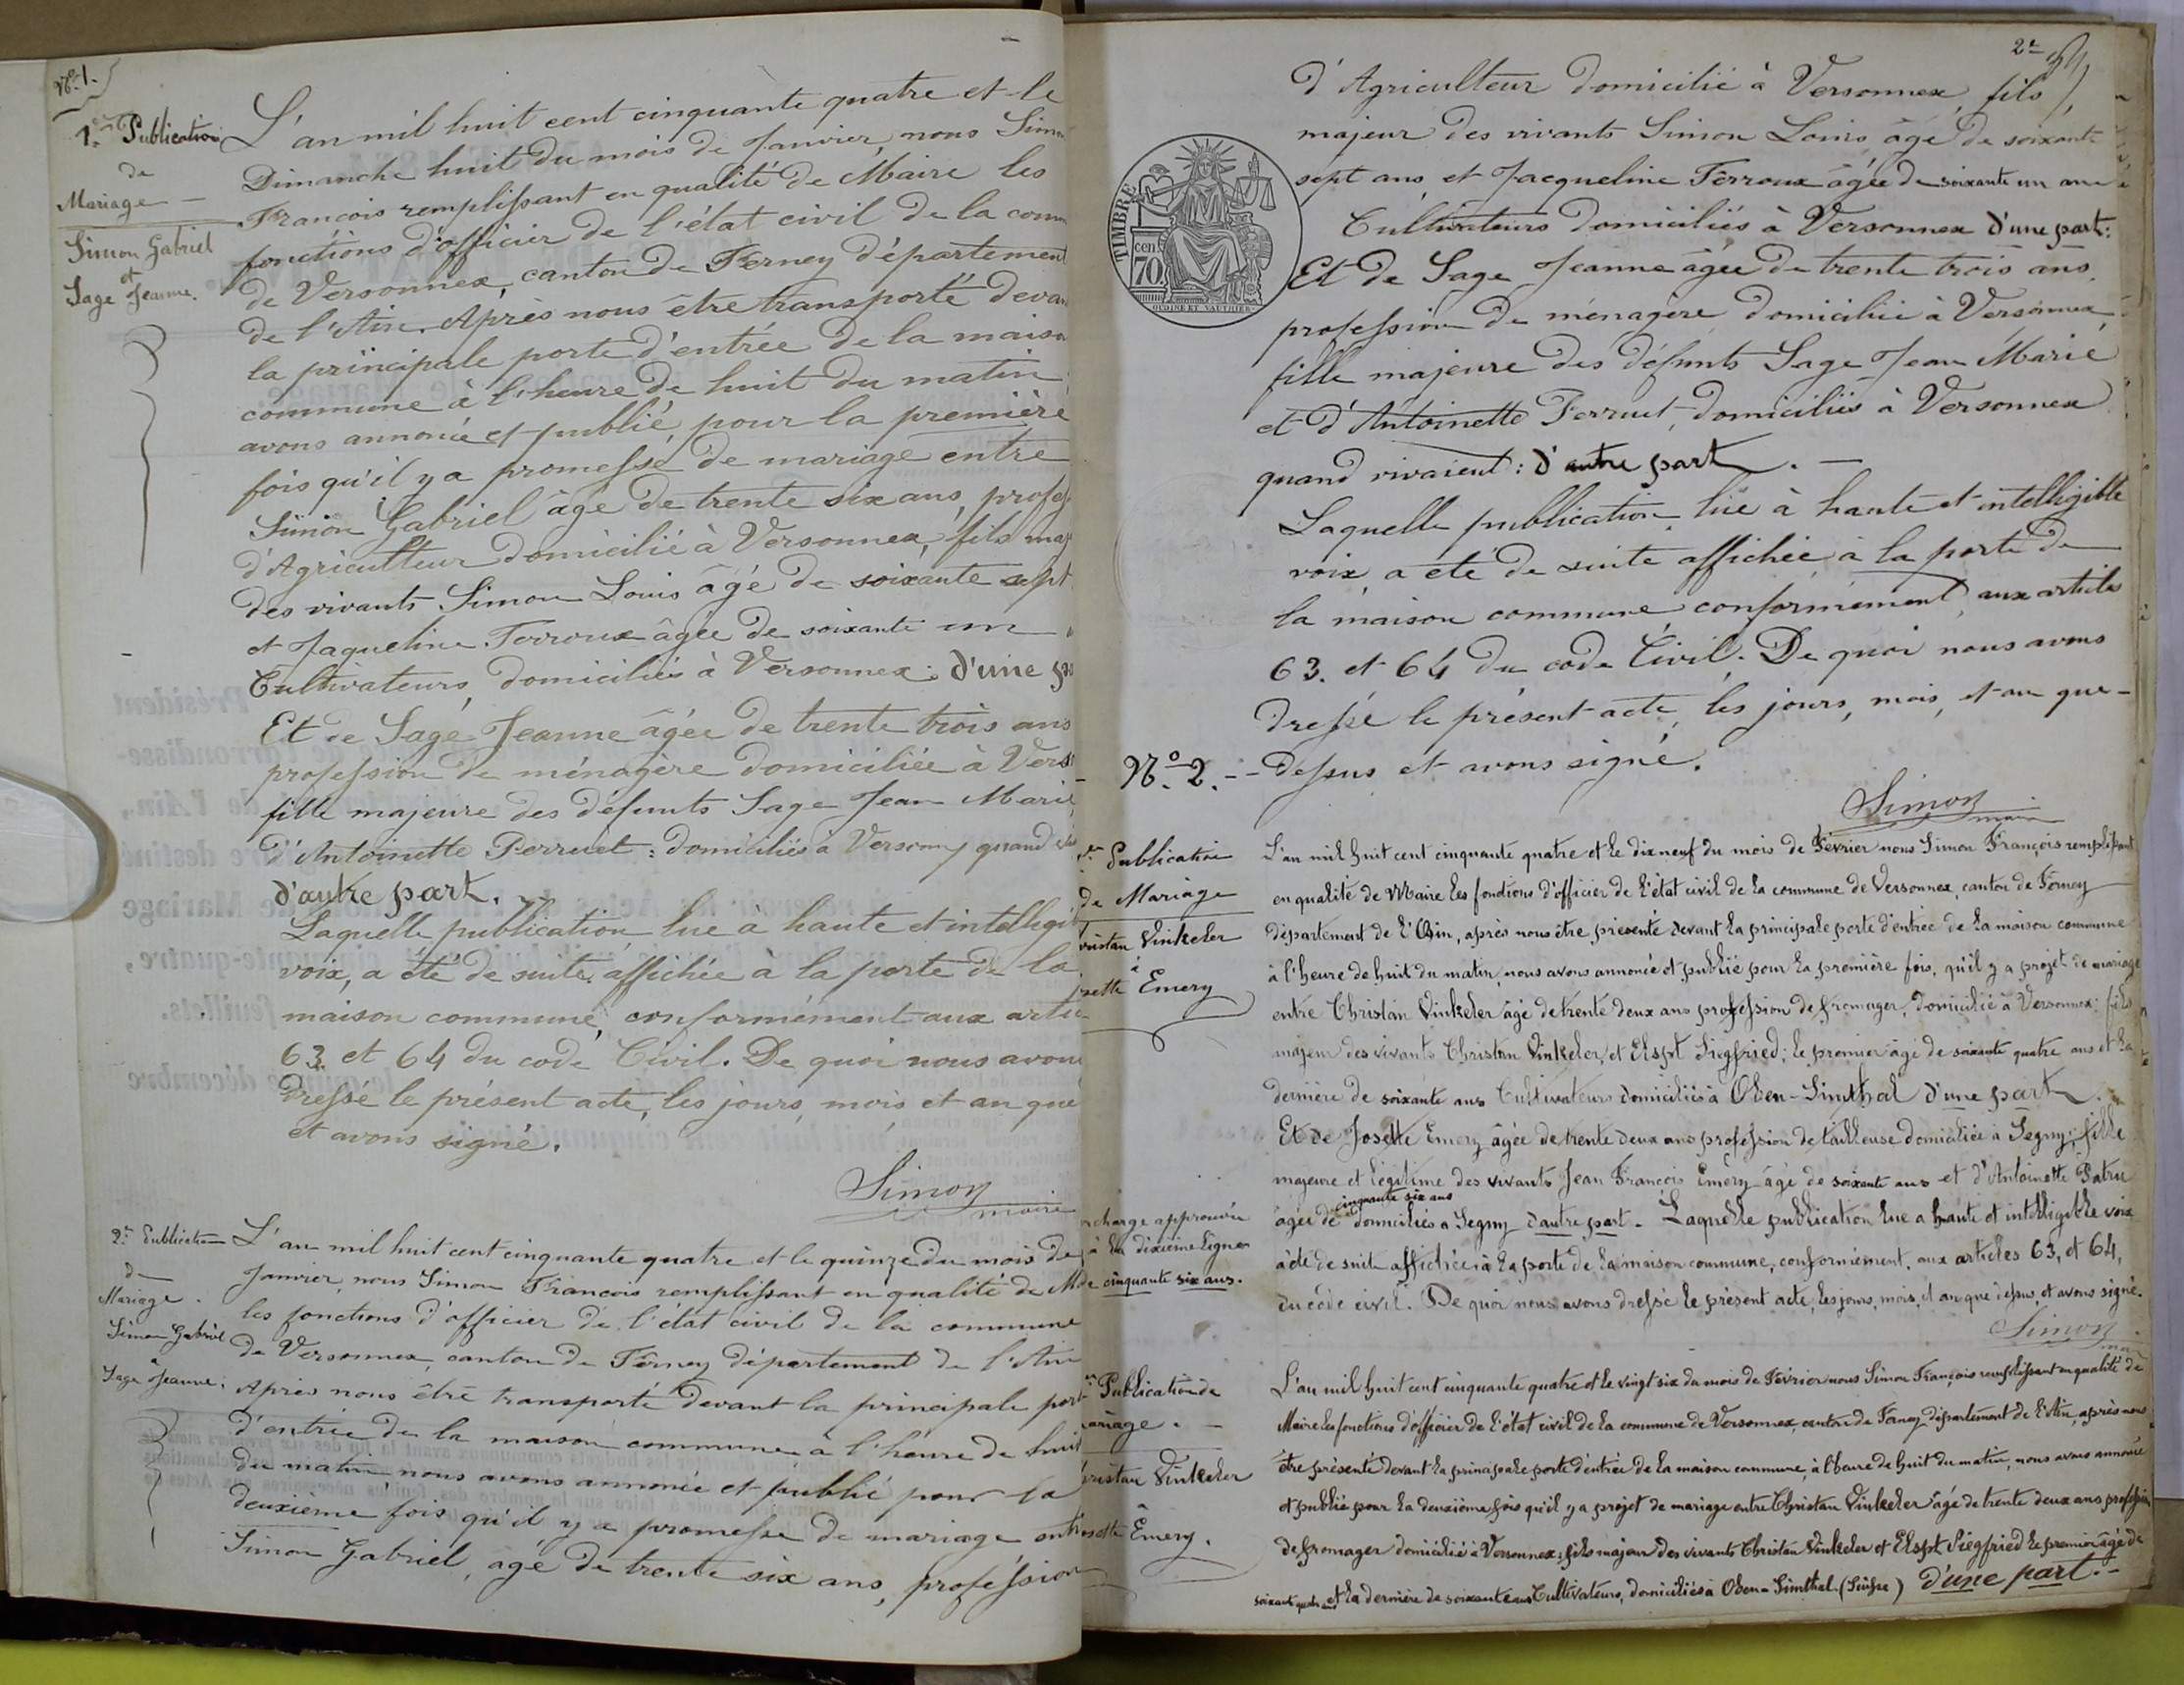 No. 1.
1re Publication
de
Mariage
Simon Gabriel
et
Sage Jeanne.
L'an mil huit cent cinquante quatre et le
Dimanche huit du mois de Janvier, nous
François remplissant en qualité de Maire les
fonctions d'officier de l'état civil de la
de Versonnex, canton de Ferney département
de l'Ain. Après nous être transporté
la principale porte d'entrée de la
commune à l'heure de huit du matin
avons annoncé et publié pour la première
fois qu'il y a promesse de mariage entre
Simon Gabriel âgé de trente six ans,
d'Agriculteur domicilié à Versonnex, fils
des vivants Simon Louis âgé de soixante sept
et Jaqueline Ferroux âgée de soixante un
Cultivateurs domiciliés à Versonnex : d'une
Et de Sage Jeanne âgée de trente trois ans
profession de ménagère domiciliée à
fille majeure des défunts Sage Jean Marie
d'Antoinette Perruet : domiciliés à quand
d'autre part.
Laquelle publication lue à haute et
voix, a été de suite affichée à la porte de la
maison commune, conformément aux
63. et 64 du code Civil. De quoi nous avons
dressé le présent acte, les jours, mois et an que
et avons signé.
Simon
maire
2e Publication
de
Mariage.
Simon Gabriel
à
Sage Jeanne.
L'an mil huit cent cinquante quatre et le quinze du mois de
Janvier, nous Simon François remplissant en qualité de
les fonctions d'officier de l'état civil de la commune
de Versonnex, canton de Ferney département de l'Ain
Après nous être transporté devant la principale
d'entrée de la maison commune à l'heure de huit
du matin nous avons annoncé et publié pour la
deuxième fois qu'il y a promesse de mariage
Simon Gabriel, âgé de trente six ans, profession
d'Agriculteur domicilié à Versonnex, fils
majeur des vivants Simon Louis âgé de soixante
sept ans et Jacqueline Ferroux âgée de soixante un ans
Cultivateurs domiciliés à Versonnex d'une part :
Et de Sage Jeanne âgée de trente trois ans
profession de ménagère domiciliée à Versonnex,
fille majeure des défunts Sage Jean Marie
et d'Antoinette Perruet, domiciliés à Versonnex
quand vivaient : d'autre part.
TIMBRE
cent.
70.
Laquelle publication lue à haute et intelligible
voix a été de suite affichée à la porte de
la maison commune conformément aux articles
63. et 64 du code Civil. De quoi nous avons
dressé le présent acte, les jours, mois, et an que
No. 2. -- dessus et avons signé.
Simon
maire
Publication
de Mariage
Vinkeler
à
Emery
L'an mil huit cent cinquante quatre et le dix neuf du mois de Février nous Simon François remplissant
en qualité de Maire les fonctions d'officier de l'état civil de la commune de Versonnex, canton de Ferney
département de l'Ain, après nous être présenté devant la principale porte d'entrée de la maison commune
à l'heure de huit du matin, nous avons annoncé et publié pour la première fois, qu'il y a projet de mariage
entre Christan Vinkeler âgé de trente deux ans profession de fromager, domicilié à Versonnex : fils
majeur des vivants Christan Vinkeler, et Elspt Siegfried ; le premier âgé de soixante quatre ans et la
dernière de soixante ans Cultivateurs domiciliés à Oben-Simthal d'une part.
Et de Josette Emery âgée de trente deux ans profession de tailleuse domiciliée à Segny ; fille
majeure et légitime des vivants Jean François Emery âgé de soixante ans et d'Antoinette Patru
cinquante six ans
âgée de domiciliés à Segny d'autre part. Laquelle publication lue a haute et intelligible voix
à été de suite affichée à la porte de la maison commune, conformément, aux articles 63, et 64,
du code civil. De quoi nous avons dressé le présent acte, les jours, mois, et an que dessus, et avons signé.
Simon
approuvée
à la dixième ligne
de cinquante six ans.
Publication de
Vinkeler
à
Emery.
L'an mil huit cent cinquante quatre et le vingt six du mois de Février nous Simon François remplissant en qualité de
Maire les fonctions d'officier de l'état civil de la commune de Versonnex, canton de Ferney département de l'Ain, après nous
être présenté devant la principale porte d'entrée de la maison commune, à l'heure de huit du matin, nous avons annoncé
et publié pour la deuxième fois qu'il y a projet de mariage entre Christan Vinkeler âgé de trente deux ans profession
de fromager domicilié à Versonnex ; fils majeur des vivants Christan Vinkeler et Elspt Siegfried le premier âgé de
soixante quatre ans et la dernière de soixante ans Cultivateurs, domiciliés à Oben-Simthal (Suisse) d'une part.